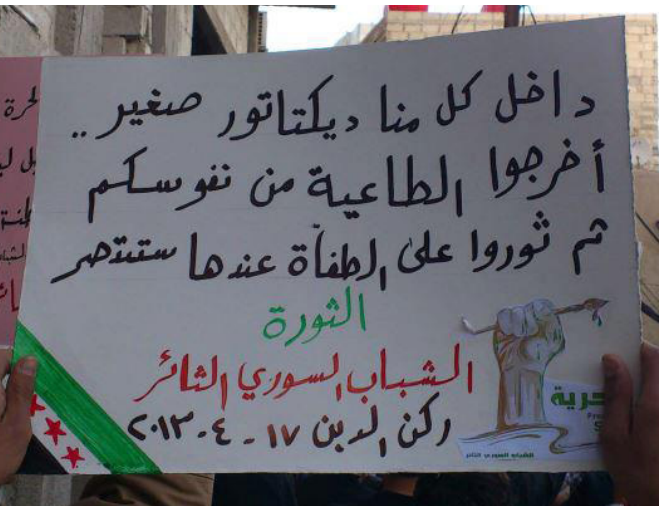 داخل كل منا ديكتاتور صغير ..
أخرجوا الطاعية من نفوسكم
ثم ثوروا على الطغاة عندها ستنتصر
الثورة
الشباب السوري الثائر
ركن الدين ١٧ - ٤ - ٢٠١٣
حرية
الشباب السوري الثائر
لحرة